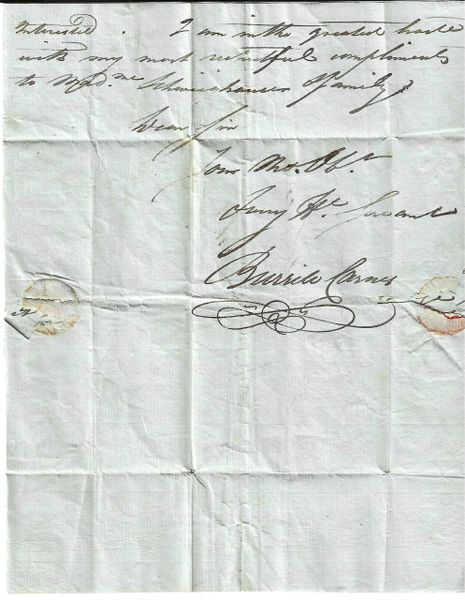 Interested. I am in the greatest haste
with my most respectful compliments
to Mad.me & family
Dear Sir
Your Mo. Ob.t
Hl. Servant
Burrill Carnes